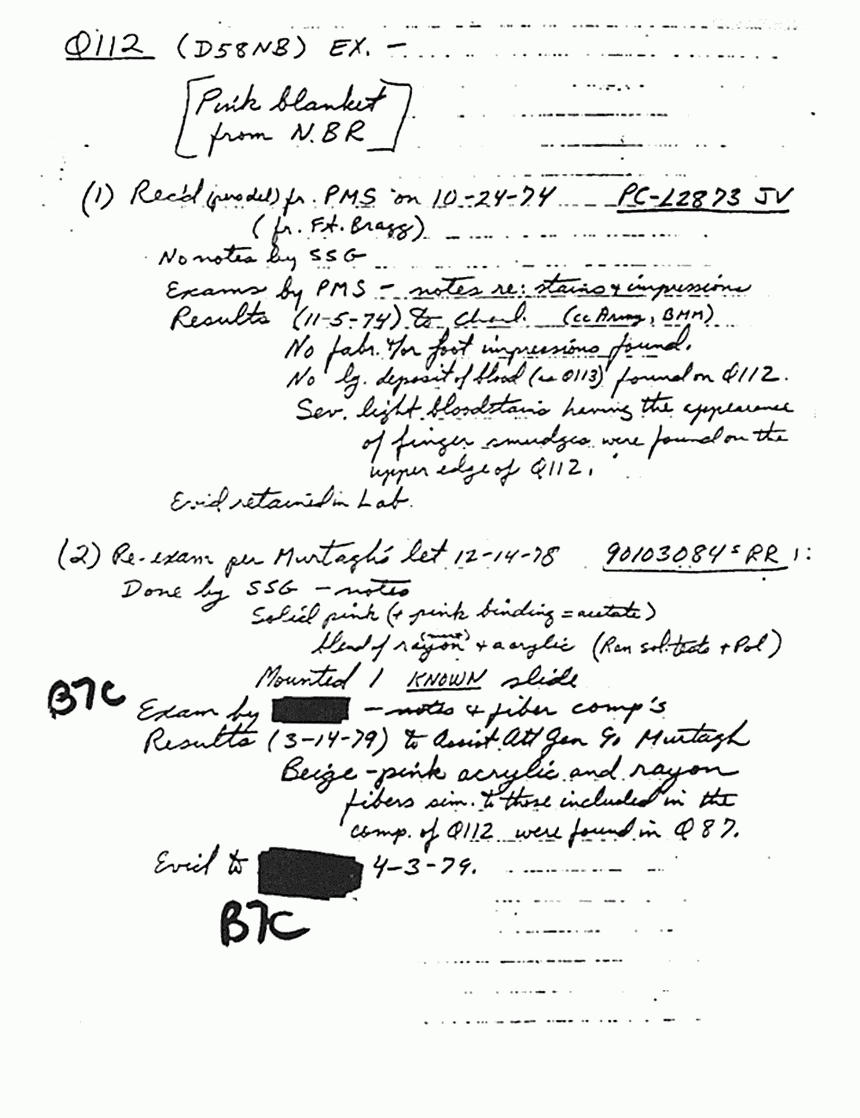 Q112 (D58NB) EX. -
[Pink blanket
from N.BR]
(1) Rec'd (pers del) fr. PMS on 10-24-74 PC-L2873 JV
(fr. Ft. Bragg)
No notes by SSG
Exams by PMS - notes re: stains & impressions
Results (11-5-74) to Charl. (cc Army, BMM)
No fabr. &/or foot impressions found.
No lg. deposit of blood (as Q113) found on Q112.
Sev. light bloodstains having the appearance
of finger smudges were found on the
upper edge of Q112.
Evid retained in Lab.
(2) Re-exam per Murtagh's let 12-14-78 90103084 S RR
Done by SSG - notes
Solid pink (+ pink binding = acetate)
blend of rayon & acrylic (Ran sol. tests + Pol)
Mounted 1 KNOWN slide
B7C
Exam by - notes & fiber comp's
Results (3-14-79) to Assist Att Gen Murtagh
Beige-pink acrylic and rayon
fibers sim. to those included in the
comp. of Q112 were found in Q87.
Evid to 4-3-79.
B7C